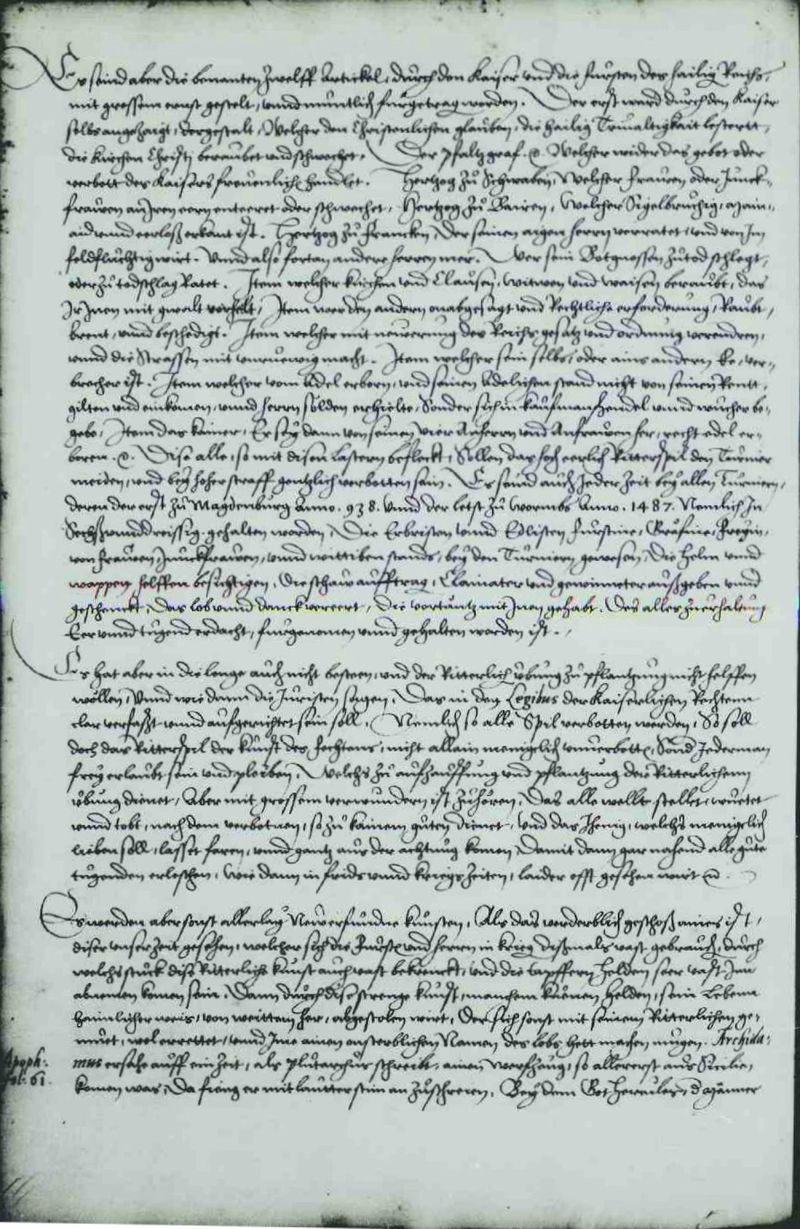 Es seind aber die benanten Zwelff Artickel, durch den Kaiser vnd die fürsten des hailig Reichs,
mit grossem ernst gestelt, vnnd müntlich fürgetrag worden. Der erst ward durch den Kaiser
selbs angezaigt, dergestalt, Welcher den Christenlichen glauben, die hailig Triualtigkait lestertt,
die kirchen Christi beraubet vnd schwechet. Der Pfaltzgraf. Welcher wider das gebot oder
verbott des Kaisers freuenlich handlet. Hertzog zů Schwaben, Welcher frawen oder Junck-
frawen an Iren eern enteeret oder schwechet, Hertzog zů Bairen, Welcher Sigelbrüchig, main-
aid vnnd eerloß erkant ist. Hertzog zů francken, Der seinen aigen herrn verratet, vnd von Im
feldflüchtig wirt. Vnnd also fortan andere herren mer. Wer sein Betgnossen zůtod schlegt,
oder zů todschlag Ratet. Item welcher kirchen vnd Clausen, witwen vnd waisen beraubt, das
Ir Inen mit gwalt vorhelt, Item wer den andern onabgesagt vnd Rechtliche erforderung, Raubt,
brent, vnnd beschedigt. Item welcher mit neuerung des Reichs gesatz vnd ordnung verendren,
vnnd die Strassen mit vnruewig macht. Item welcher sein selbs, oder ains andern Ee, ver-
brecher ist. Item welcher vom Adel erborn, vnd seinen Adelichen stand nicht von seinen Rentt,
gilten vnd einkomen, vnnd herrn sölden erhielte, Sonder sich in kaufmanshendel vnnd wůcher be-
gebe, Item das kainer, Er sey dann von seinen vier Anherrn vnd Anfrawen her, recht edel er-
boren. Dise alle, so mit disen lastern befleckt, Sollen das hoch eerlich Ritterspil den Turnier
meiden, vnd bey hoher straff gentzlich verbotten sein. Es seind auch Jeder zeit bey allen Turnieren,
deren der erst zů Magdenburg Anno. 938. vnnd der letst zů Wormbs Anno. 1487. Nemlich In
Sechß vnnd dreissig, gehalten worden, Die Erbristen vnnd Edlisten, fürstine, Gräfine, Freyin,
von frawen Junckfrawen, vnnd wittiben stands, bey den Turniern gewesen, Die helm vnnd
wappen helffen besichtigen, Die schaw aufftrag, Clainater vnd gewinneter außgeben vnnd
geschenckt, das lob vnnd danck vereert, die vortäntz mit Inen gehabt. Des alles zů erhaltung
Eer vnnd tugend erdacht, fürgenomen vnnd gehalten worden ist.
Es hat aber in die lenge auch nicht besteen, vnd der Ritterlich übung zů pflantzung nicht helffen
wöllen, Vnnd wie dann die Juristen sagen, Das in den Legibus der kaiserlichen Rechtenn
clar verfaßt vnnd aufgerichtet sein soll, Nemlich so alle Spil verbotten werden, So soll
doch das Ritterspil der kunst des fechtens, nicht allain meniglich vnuerbottt, Sond Jederman
frey erlaubt sein vnd pleiben, Welchs zů aufhauffung vnd pflantzung der Ritterlichenn
übung dienet, Aber mit grossem verwundern ist zůhören, Das alle wellt stellet, wüetet
vnnd tobt, nach dem verbotnen, so zů kainem gůten dienet, vnd das Jhenig, welchs menigclich
lieben soll, lasset faren, vnnd gantz aus der achtung komen, Damit dann gar nahend alle gůte
tugenden erleschen, wie dann in frids vnnd kriegs zeiten, laider offt gesehen wirt
Es werden aber sonst allerlay Newerfundne künsten, Als das verderblich geschoß aines ist,
diser vnser zeit gesehen, welches sich die fürsten vnd herren in krieg dißmals vast gebrauch, durch
welchs stuck dise Ritterliche kunst auch vast bekrenckt, vnd die tapffern Helden seer vast Inn
abnemen komen sein, Dann durch dise strenge kunst, manchem küenen Helden, sein Lebenn
haimlichter weis, von weittem her, abgestolen wirt, Der sich sonst mit seinem Ritterlichen ge-
müet, wol errettet, vnnd Ime ainen vnsterblichen Namen des lobs hett machen mügen. Archida-
mus ersahe auff ein zeit, als Plutarchus schreibt, ainen werfzeug, so allererst aus Sicilie,
komen was, Da fieng er mit lautter stim an zůschreien, Bey dem Got Hercules, d männer
Apoph:
fol: 61.